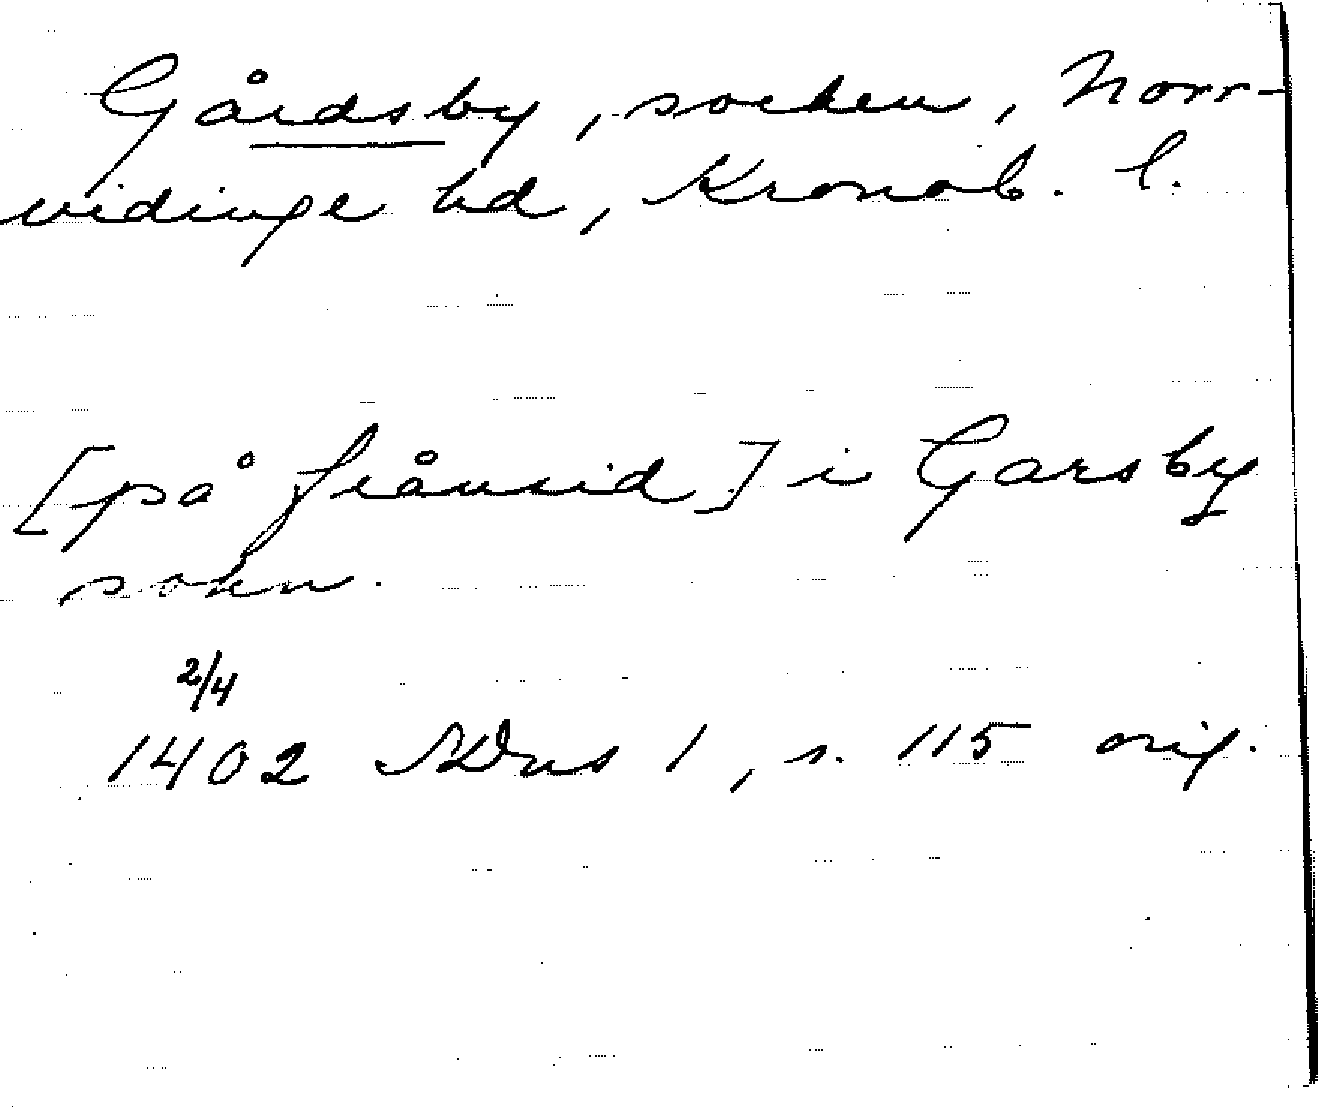 Gårdsby, socken, Norr-
vidinge hd, Kronob. l.
[på frånsid] i Garsby
sokn.
2/4
1402 SDns 1, s. 115 orig.